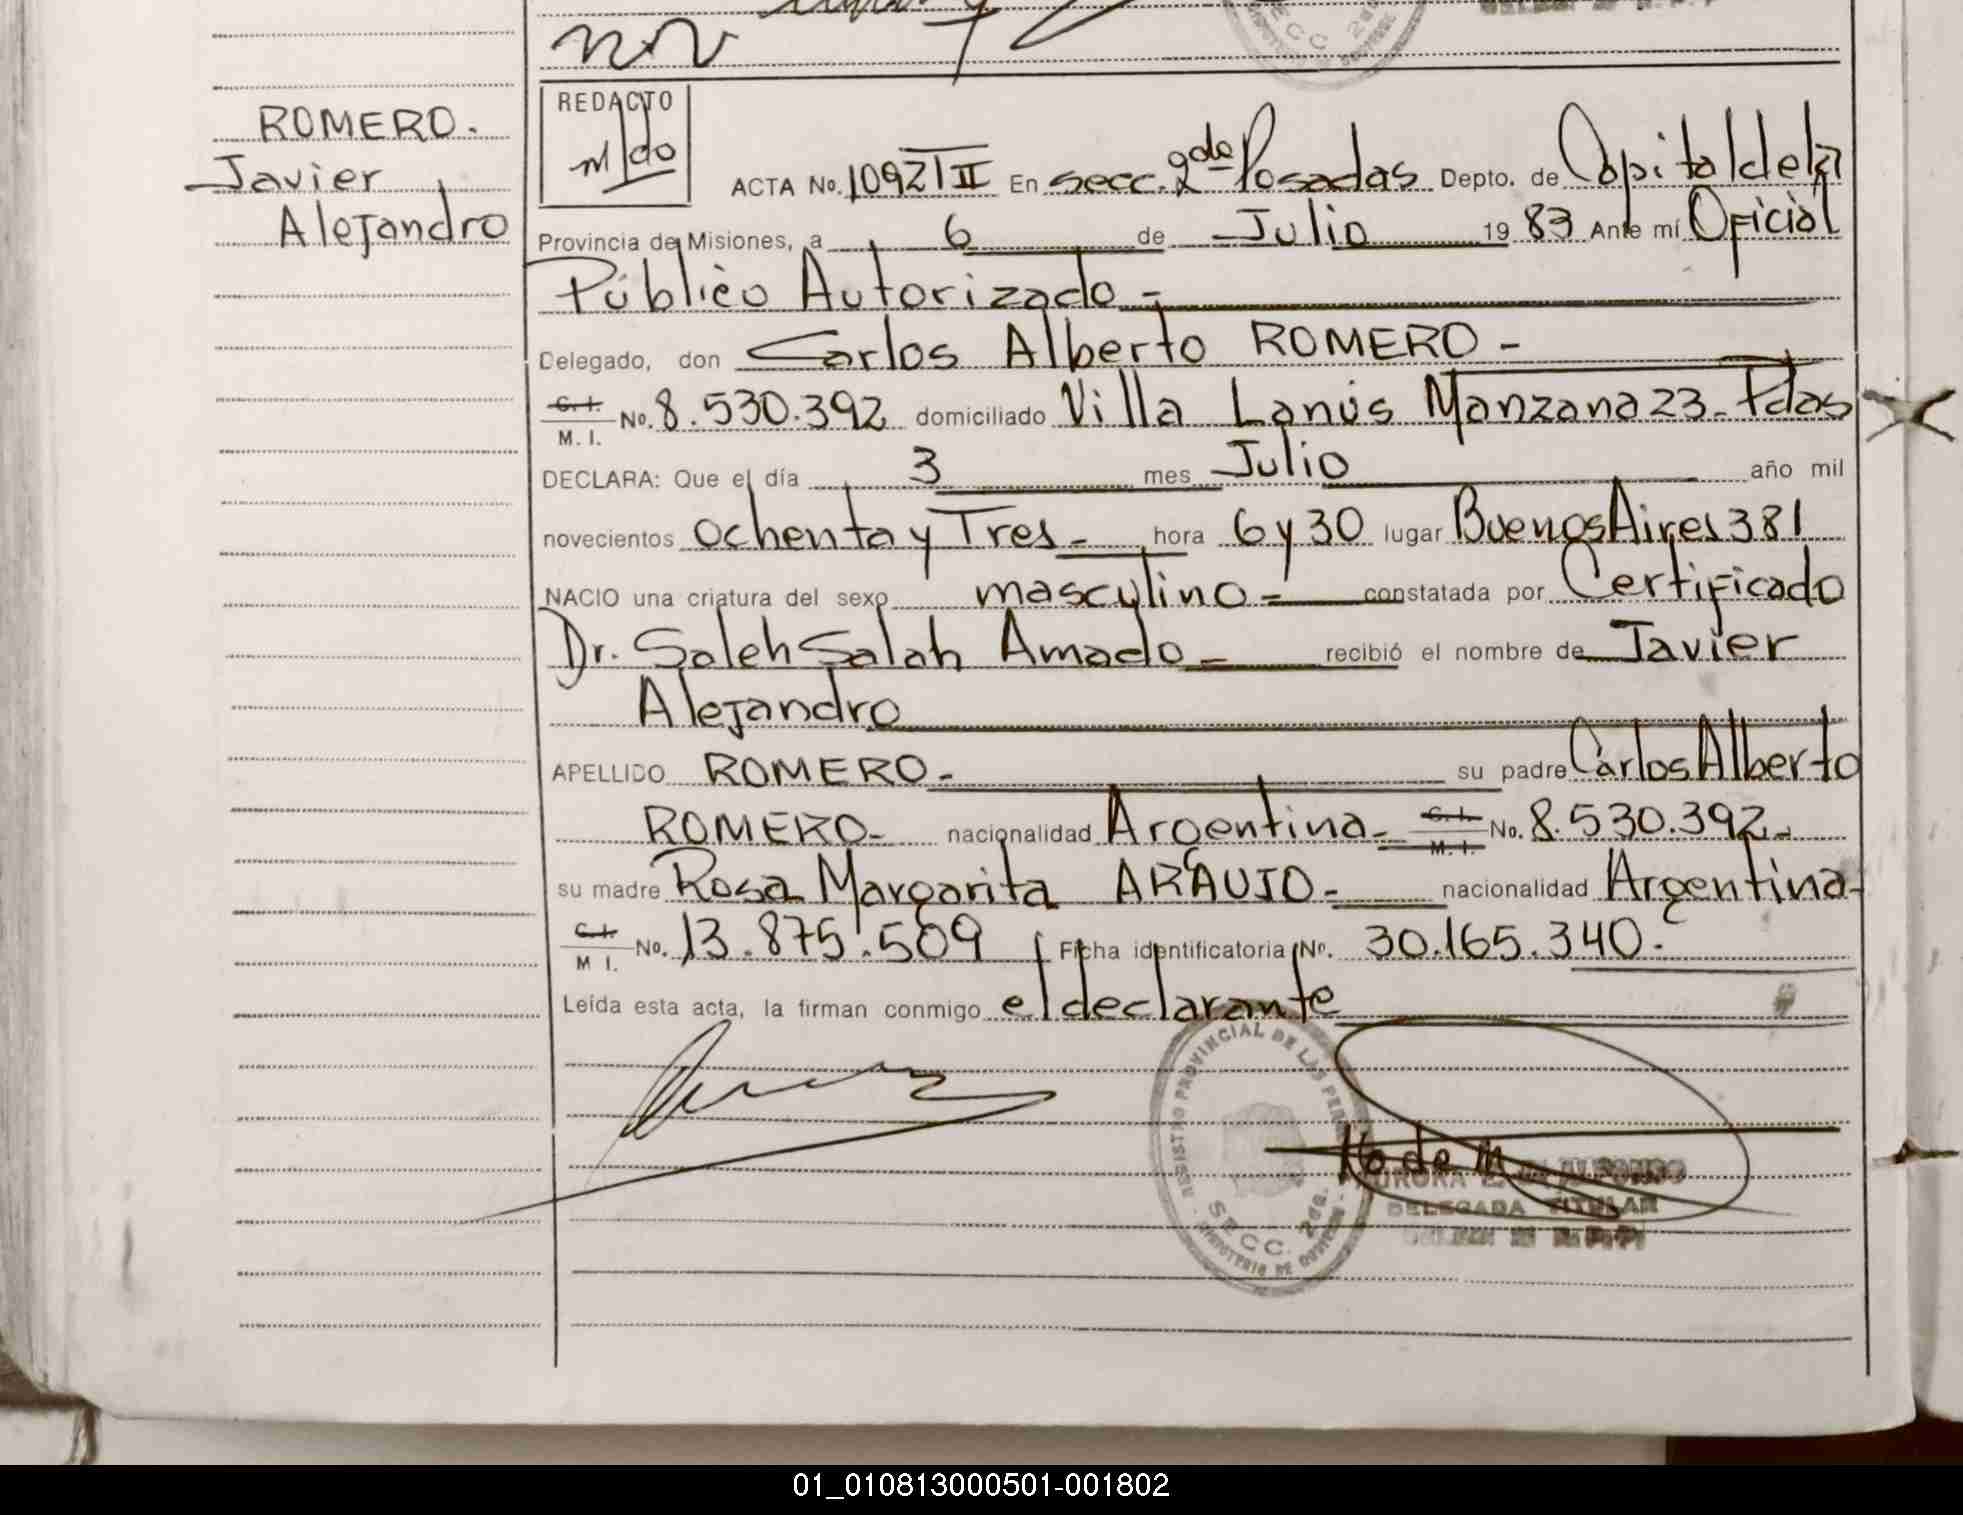 ROMERO.
Javier
Alejandro
REDACTO
ACTA No. 1092 T II En secc. 2da Posadas Depto. de Capital de la
Provincia de Misiones, a 6 de Julio 19 83 Ante mí Oficial
Público Autorizado -
Delegado, don Carlos Alberto ROMERO -
C.I. M.I. No. 8.530.392 domiciliado Villa Lanús Manzana 23 - Pdas
DECLARA: Que el día 3 mes Julio año mil
novecientos ochenta y Tres - hora 6 y 30 lugar Buenos Aires 381
NACIO una criatura del sexo masculino - constatada por Certificado
Dr. Saleh Salah Amado - recibió el nombre de Javier
Alejandro
APELLIDO ROMERO - su padre Carlos Alberto
ROMERO - nacionalidad Argentina - C.I. M.I. No. 8.530.392 -
su madre Rosa Margarita ARAUJO - nacionalidad Argentina -
C.I. M I. No. 13.875.509 Ficha identificatoria No. 30.165.340.
Leída esta acta, la firman conmigo el declarante
REGISTRO PROVINCIAL DE LAS
SECC. 2da.
DELEGADA TITULAR
01_010813000501-001802